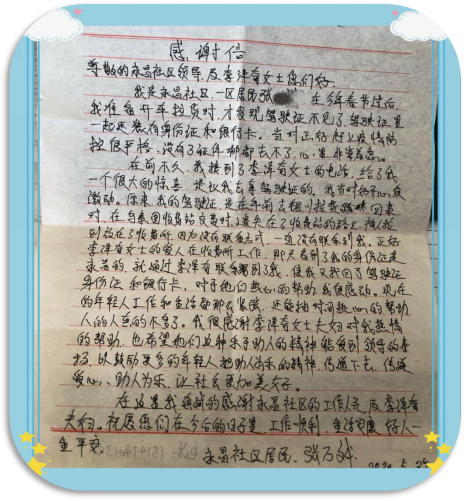 感谢信
尊敬的永昌社区领导及李泽有女士您们好
我是永昌社区一区居民张 在今年春节过后
我准备开车拉货时,才发现驾驶证不见了,驾驶证里
一起还装有身份证和银行卡。当时正好赶上疫情防
控很严格,没有了证件哪都去不了,心里非常着急。
在前不久,我接到了李泽有女士的电话,给了我
一个很大的惊喜 我去拿驾驶证的,我当时
激动。原来,我的驾驶证是在年前去银川拉货 回来
时,在 收费站交费时,遗失在了收费站的路上,被人捡
到放在了收费所,因为没有联系方式,一直没有联系到我。正好
李泽有女士的爱人在收费所工作,那天看到了我的身份证是
永昌的,就通过李泽有联系到了我,使我又找回了驾驶证
身份证和银行卡,对于他们热心的帮助,我很感动。现在
的年轻人工作和生活都那么紧张,还能抽时间热心的帮助
人的人真的不多了。我很感谢李泽有女士夫妇对我热情
的帮助,也希望他们这种乐于助人的精神能受到领导的表
扬,以鼓励更多的年轻人把助人为乐的精神,传递下去,传递
爱心、助人为乐,让社会更加美好。
在这里我真诚的感谢永昌社区的工作人员及李泽有
夫妇。祝愿您们在今后的日子里,工作顺利,生活安康,好人一
生平安。
永昌社区居民:张万
2020.5.25